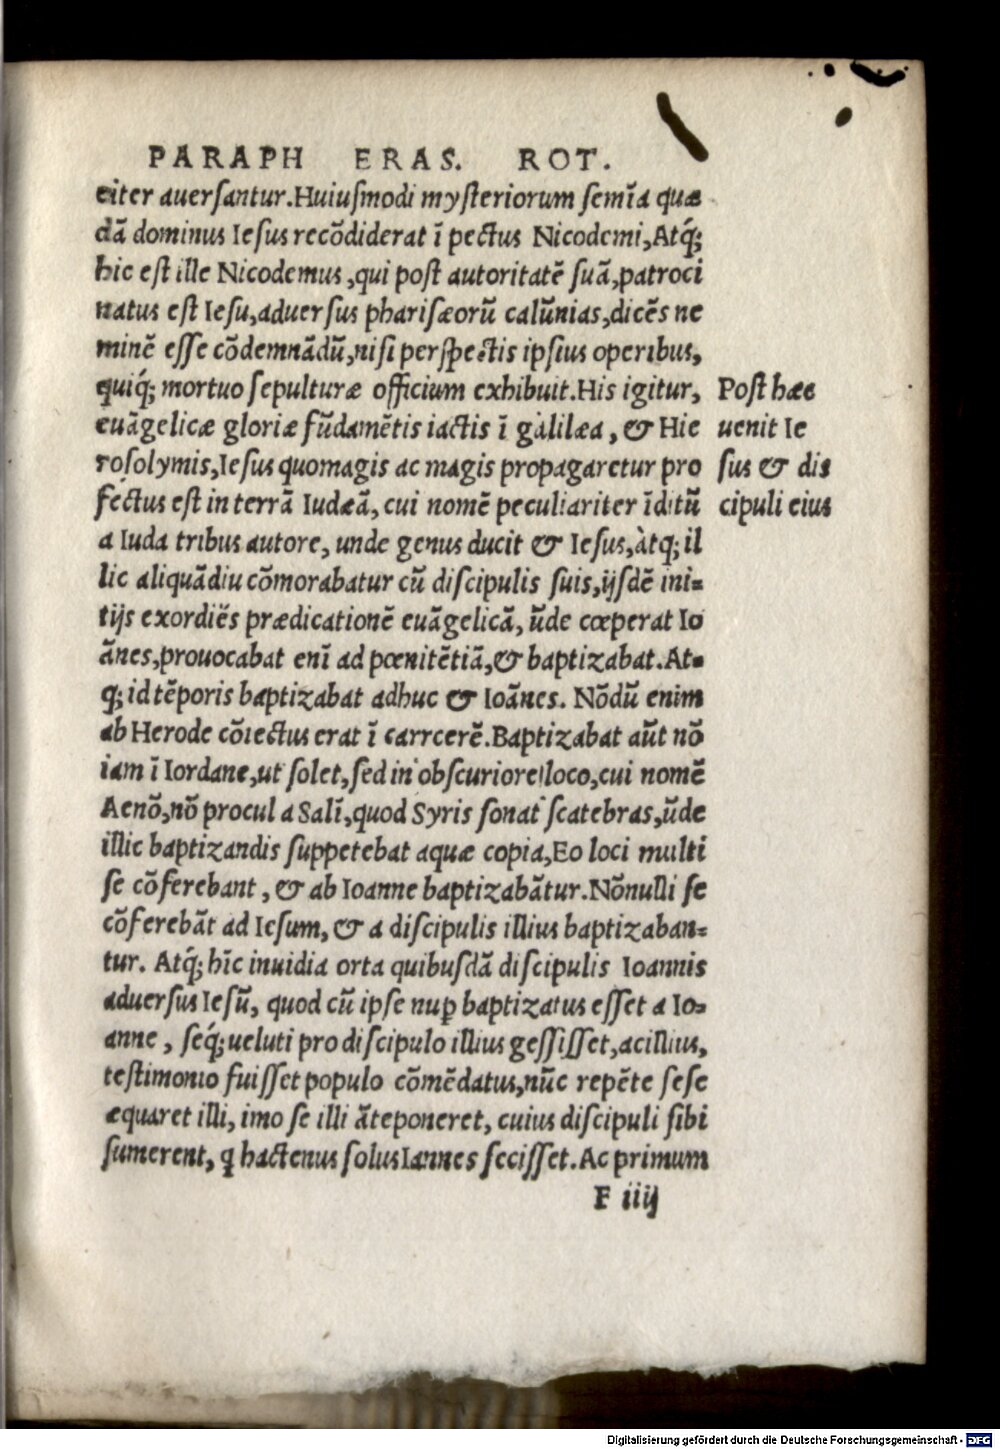 PARAPH ERAS. ROT.
eiter auersantur. Huiusmodi mysteriorum semīa quæ
dā dominus Iesus recōdiderat ī pectus Nicodemi, Atq́;
hic est ille Nicodemus, qui post autoritatē suā, patroci
natus est Iesu, aduersus pharisæorū calūnias, dicēs ne
minē esse cōdemnādū, nisi perspectis ipsius operibus,
quiq́; mortuo sepulturæ officium exhibuit. His igitur,
euāgelicæ gloriæ fūdamētis iactis ī galilæa, & Hie
rosolymis, Iesus quomagis ac magis propagaretur pro
fectus est in terrā Iudæā, cui nomē peculiariter īditū
a Iuda tribus autore, unde genus ducit & Iesus, àtq; il
lic aliquādiu cōmorabatur cū discipulis suis, ijsdē ini-
tijs exordiēs prædicationē euāgelicā, ūde cœperat Io
ānes, prouocabat enī ad pœnitētiā, & baptizabat. At-
q; id tēporis baptizabat adhuc & Ioānes. Nōdū enim
ab Herode cōiectus erat ī carrcerē. Baptizabat aūt nō
iam ī Iordane, ut solet, sed in obscuriore loco, cui nomē
Aenō, nō procul a Salī, quod Syris sonat scatebras, ūde
illic baptizandis suppetebat aquæ copia, Eo loci multi
se cōferebant, & ab Ioanne baptizabātur. Nōnulli se
cōferebāt ad Iesum, & a discipulis illius baptizaban-
tur. Atq́; hīc inuidia orta quibusdā discipulis Ioannis
aduersus Iesū, quod cū ipse nuꝑ baptizatus esset a Io-
anne, seq́; ueluti pro discipulo illius gessisset, ac illius,
testimonio fuisset populo cōmēdatus, nūc repēte sese
æquaret illi, imo se illi āteponeret, cuius discipuli sibi
sumerent, ꝗ hactenus solus Iannes fecisset. Ac primum
F iiij
Post hæc
uenit Ie
sus & dis
cipuli eius
Digitalisierung gefördert durch die Deutsche Forschungsgemeinschaft - DFG